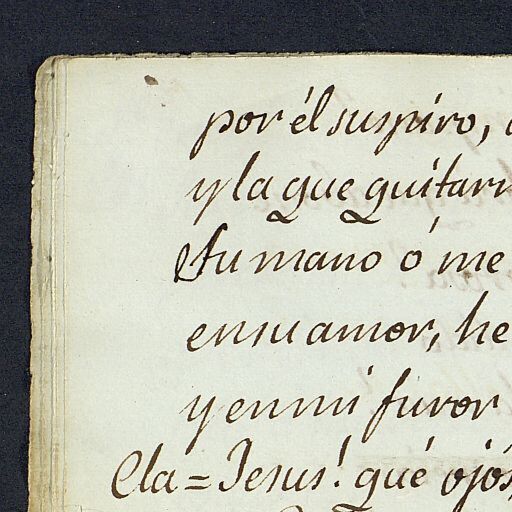 por él suspiro,
y la que quitar
su mano ó me
en su amor, he
y en mi furor
Cla = Jesus! qué ojos